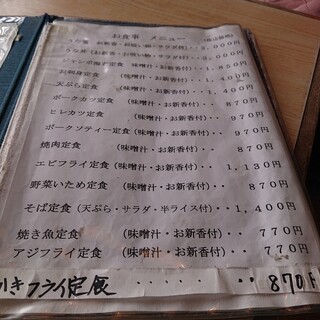 お食事 メニュー
お刺身定食 (味噌汁・お新香付)・・1,400円
天ぷら定食 (味噌汁・お新香付)・・1,400円
ポークカツ定食 (味噌汁・お新香付)・・870円
ヒレカツ定食 (味噌汁・お新香付)・・970円
ポークソティー定食 (味噌汁・お新香付)・・970円
焼肉定食 (味噌汁・お新香付)・・870円
エビフライ定食 (味噌汁・お新香付)・・1,130円
野菜いため定食 (味噌汁・お新香付)・・870円
そば定食 (天ぷら・サラダ・半ライス付)・・1,400円
焼き魚定食 (味噌汁・お新香付)・・770円
アジフライ定食 (味噌汁・お新香付)・・770円
かきフライ定食 ・・・・・ ・・870円